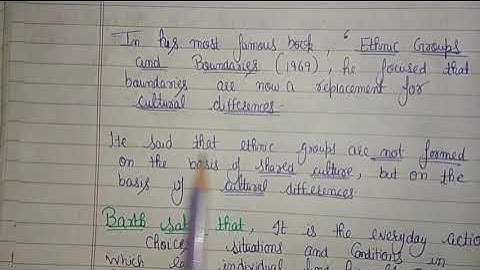 In his most famous book, "Ethnic Groups
and Boundaries (1969), he focused that
boundaries are now a replacement for
cultural differences.
He said that ethnic groups are not formed
on the basis of shared culture, but on the
basis of cultural differences.
Barth says that, It is the everyday actio
choices, situations and Conditions in
which individual